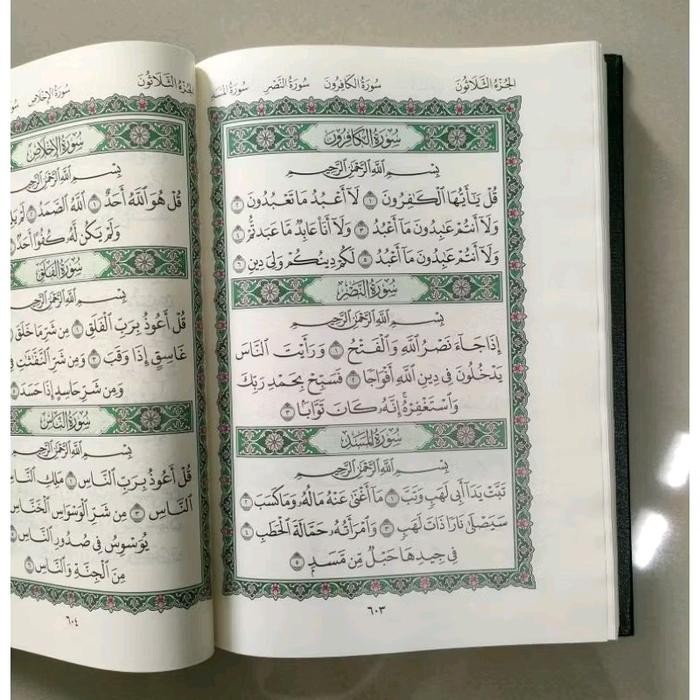 الجُزْءُ الثَّلَاثُونَ سُورَةُ الكَافِرُونَ سُورَةُ النَّصْرِ سُورَةُ المَسَدِ
سُورَةُ الكَافِرُونَ
بِسْمِ اللَّهِ الرَّحْمَٰنِ الرَّحِيمِ
قُلْ يَٰٓأَيُّهَا الْكَٰفِرُونَ ١ لَآ أَعْبُدُ مَا تَعْبُدُونَ ٢
وَلَآ أَنتُمْ عَٰبِدُونَ مَآ أَعْبُدُ ٣ وَلَآ أَنَا۠ عَابِدٌ مَّا عَبَدتُّمْ ٤
وَلَآ أَنتُمْ عَٰبِدُونَ مَآ أَعْبُدُ ٥ لَكُمْ دِينُكُمْ وَلِيَ دِينِ ٦
سُورَةُ النَّصْرِ
بِسْمِ اللَّهِ الرَّحْمَٰنِ الرَّحِيمِ
إِذَا جَآءَ نَصْرُ اللَّهِ وَالْفَتْحُ ١ وَرَأَيْتَ النَّاسَ
يَدْخُلُونَ فِي دِينِ اللَّهِ أَفْوَاجًا ٢ فَسَبِّحْ بِحَمْدِ رَبِّكَ
وَاسْتَغْفِرْهُ ۚ إِنَّهُۥ كَانَ تَوَّابًۢا ٣
سُورَةُ المَسَدِ
بِسْمِ اللَّهِ الرَّحْمَٰنِ الرَّحِيمِ
تَبَّتْ يَدَآ أَبِي لَهَبٍ وَتَبَّ ١ مَآ أَغْنَىٰ عَنْهُ مَالُهُۥ وَمَا كَسَبَ ٢
سَيَصْلَىٰ نَارًا ذَاتَ لَهَبٍ ٣ وَامْرَأَتُهُۥ حَمَّالَةَ الْحَطَبِ ٤
فِي جِيدِهَا حَبْلٌ مِّن مَّسَدٍۭ ٥
٦٠٣
الجُزْءُ الثَّلَاثُونَ سُورَةُ الإِخْلَاصِ
سُورَةُ الإِخْلَاصِ
بِسْمِ اللَّهِ الرَّحْمَٰنِ الرَّحِيمِ
قُلْ هُوَ اللَّهُ أَحَدٌ ١ اللَّهُ الصَّمَدُ ٢ لَمْ
وَلَمْ يَكُن لَّهُۥ كُفُوًا أَحَدٌۢ
سُورَةُ الفَلَقِ
بِسْمِ اللَّهِ الرَّحْمَٰنِ الرَّحِيمِ
قُلْ أَعُوذُ بِرَبِّ الْفَلَقِ ١ مِن شَرِّ مَا خَلَقَ
غَاسِقٍ إِذَا وَقَبَ ٣ وَمِن شَرِّ النَّفَّٰثَٰتِ فِي
وَمِن شَرِّ حَاسِدٍ إِذَا حَسَدَ
سُورَةُ النَّاسِ
بِسْمِ اللَّهِ الرَّحْمَٰنِ الرَّحِيمِ
قُلْ أَعُوذُ بِرَبِّ النَّاسِ ١ مَلِكِ النَّاسِ
النَّاسِ ٣ مِن شَرِّ الْوَسْوَاسِ الْخَنَّاسِ
يُوَسْوِسُ فِي صُدُورِ النَّاسِ
مِنَ الْجِنَّةِ وَالنَّاسِ ٦
٦٠٤